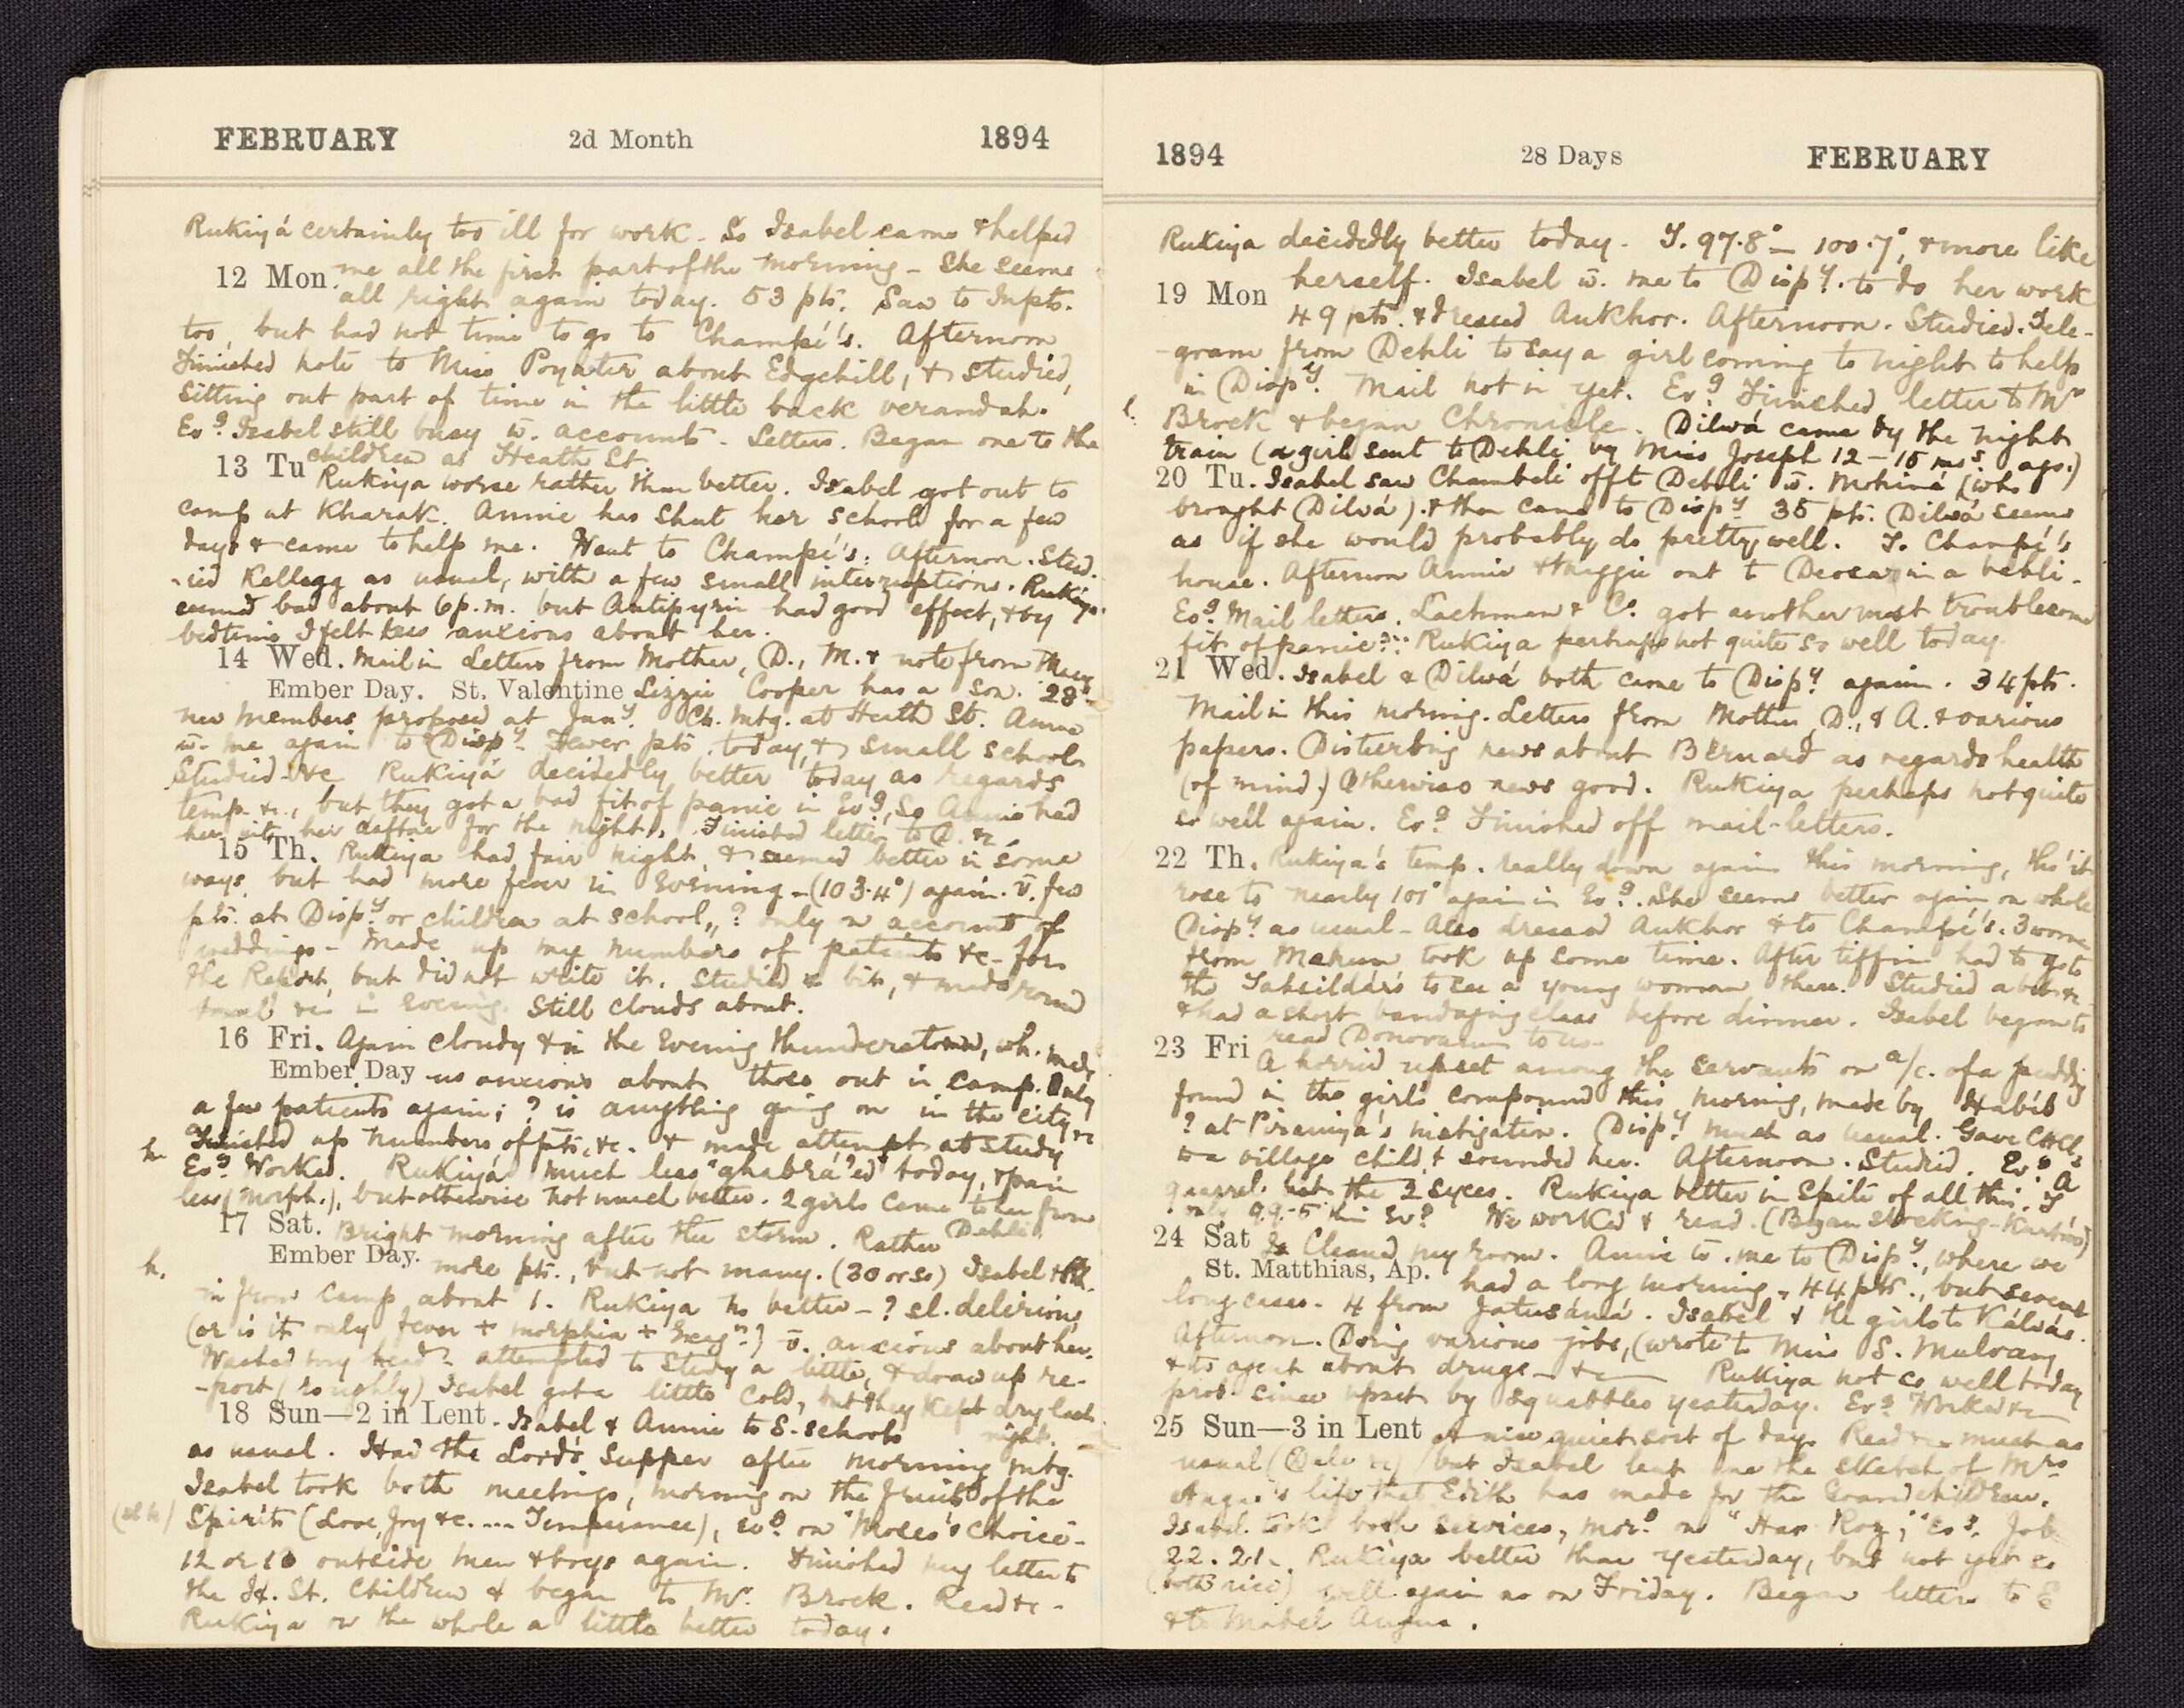 FEBRUARY 2d Month 1894
Rukiyá certainly too ill for work. So Isabel came & helped
12 Mon. me all the first part of the morning – She seems
all right again today. 53 pts. Saw to Inpts.
too, but had not time to go to Champé's. Afternoon
Finished note to Miss Poynter about Edgehill, & studied,
sitting out part of time in the little back verandah.
Evg. Isabel still busy w̄. accounts. Letters. Began one to the
children at Heath St.
13 Tu Rukiya worse rather than better. Isabel got out to
camp at Kharak. Annie has shut her school for a few
days & came to help me. Went to Champé's. Afternoon. Stud-
-ied Kellogg as usual, with a few small interruptions. Rukiya
seemed bad about 6 p.m. but Antipyrin had good effect, & by
bedtime I felt less anxious about her.
14 Wed. Mail in Letters from Mother, D., M. & note from
Ember Day. St. Valentine Lizzie Cooper has a son. 28
new members proposed at Jany. Ch. Mtg. at Heath St. Annie
w̄. me again to Dispy. Fewer pts. today, & small school
Studied &c Rukiyá decidedly better today as regards
temp. &c., but they got a bad fit of panic in Evg, So Annie had
her into her daftar for the night. Finished letter to D. &c
15 Th. Rukiya had fair night, & seemed better in some
ways, but had more fever in Evening – (103.4°) again. v̄. few
pts. at Dispy or children at school, ? only on account of
weddings – Made up my numbers of patients &c. for
the Report, but did not write it. Studied a bit, & made round
&c in Evening. Still clouds about.
16 Fri. Again cloudy & in the Evening thunderstorm, wh. made
Ember Day us anxious about those out in camp. Only
a few patients again; ? is anything going on in the city
h. Finished up numbers of pts, &c. & made attempt at study &c
Evg. Worked. Rukiyá much less "ghabrá'ed" today, & pain
less (morph.), but otherwise not much better. 2 girls came to her from
Dehli.
17 Sat. Bright morning after the storm. Rather
Ember Day. more pts., but not many. (30 or so) Isabel &
h. in from Camp about 1. Rukiya no better – ? sl. delirious
(or is it only fever + morphia + ) v̄. anxious about her.
Washed my head – attempted to study a little, & draw up re-
-port (roughly) Isabel got a little cold, but they kept dry last
night.
18 Sun—2 in Lent. Isabel & Annie to S. schools
as usual. Had the Lord's Supper after morning mtg.
Isabel took both meetings, morning on the fruit of the
(sl h) Spirit (Love, Joy &c. .... Temperance), evg. on "Moses's Choice".
12 or 13 outside men & boys again. Finished my letter to
the H. St. Children & began to Mr. Brock. Read &c.
Rukiya on the whole a little better today.
1894 28 Days FEBRUARY
Rukiya decidedly better today. T. 97.8° – 100.7°, & more like
19 Mon herself. Isabel w̄. me to Dispy. to do her work
49 pts. & dressed Aukhor. Afternoon. Studied. Tele-
-gram from Dehli to say a girl coming to night to help
in Dispy. Mail not in yet. Evg. Finished letter to Mr
l. Brock & began Chronicle. Dilwá came by the night
train (a girl sent to Dehli by Miss Joseph 12 – 15 mos ago.)
20 Tu. Isabel saw Chambeli off to Dehli w̄. Mohiná (who
brought Dilwá). & then came to Dispy 35 pts. Dilwá seems
as if she would probably do pretty well. To Champé's
house. Afternoon Annie & Maggie out to in a behli.
Evg. Mail letters. Lachman & Co. got another most troublesome
fit of panic. Rukiya perhaps not quite so well today.
21 Wed. Isabel & Dilwá both came to Dispy. again. 34 pts.
Mail in this morning. Letters from Mother, D., & A. & various
papers. Disturbing news about Bernard as regards health
(of mind). Otherwise news good. Rukiya perhaps not quite
so well again. Evg. Finished off mail-letters.
22 Th. Rukiya's temp. really down again this morning, tho' it
rose to nearly 101° again in Evg. She seems better again on whole
Dispy. as usual – Also dressed Aukhor & to Champé's. 3 women
from Mehem took up some time. After tiffin had to go to
the Tahsildár's to see a young woman there. Studied a bit &c
& had a short bandaging class before dinner. Isabel began to
read Donovan to us.
23 Fri A horrid upset among the servants on a/c. of a
found in the girls compound this morning, made by Habíb
? at Piraniya's instigation. Dispy. much as usual. Gave
to a village child, & sounded her. Afternoon. Studied. Evg. A
quarrel bet. the 2 syces. Rukiya better in spite of all this. T
only 99.5 this Evg. We worked & read. (Began stocking- )
24 Sat Cleaned my room. Annie w̄. me to Dispy., where we
St. Matthias, Ap. had a long morning, 44 pts., but several
long cases. 4 from Jatusáná. Isabel & the girls to Kálwás.
Afternoon. Doing various jobs, (wrote to Miss S. Mulvany
& to agent about drugs – &c Rukiya not so well today
prob. since upset by squabbles yesterday. Evg. Worked &c
25 Sun—3 in Lent A nice quiet sort of day. Read &c much as
usual (Dale &c) but Isabel lent me the sketch of Mrs
Angus's life that Edith has made for the Grandchildren.
Isabel took both services, morg. on "Har Roz", Evg. Job
22. 21. Rukiya better than yesterday, but not yet so
(both nice) well again as on Friday. Began letters to E
& to Mabel Angus.